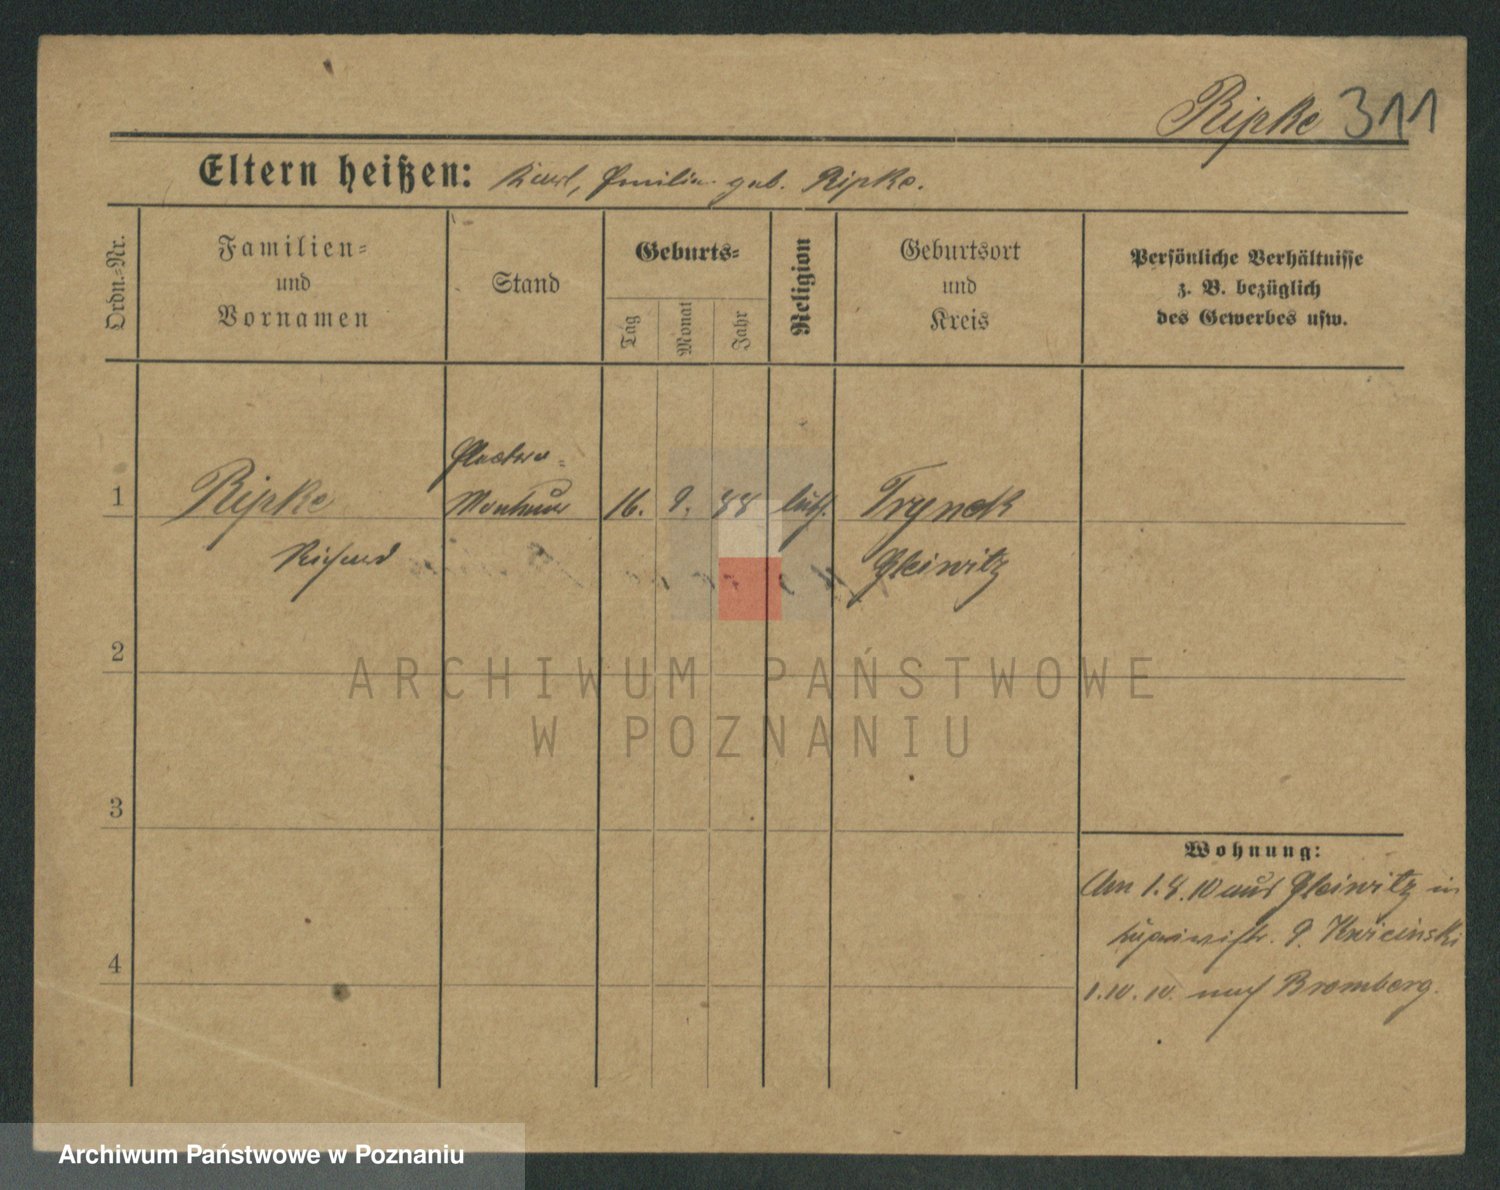 Ripke 311
Eltern heißen: Karl, Emilie geb. Ripke.
Ordn.=Nr.
Familien=
und
Vornamen
Stand
Geburts=
Tag
Monat
Jahr
Religion
Geburtsort
und
Kreis
Persönliche Verhältnisse
z. B. bezüglich
des Gewerbes usw.
Electro-
1 Ripke Monteur 16. 9. 88 luth. Trynek
Richard Gleiwitz
2
3
4
Wohnung:
Am 1.8.10 aus Gleiwitz in
9. Kwicinski
1.10.10. nach Bromberg.
ARCHIWUM PAŃSTWOWE
W POZNANIU
Archiwum Państwowe w Poznaniu